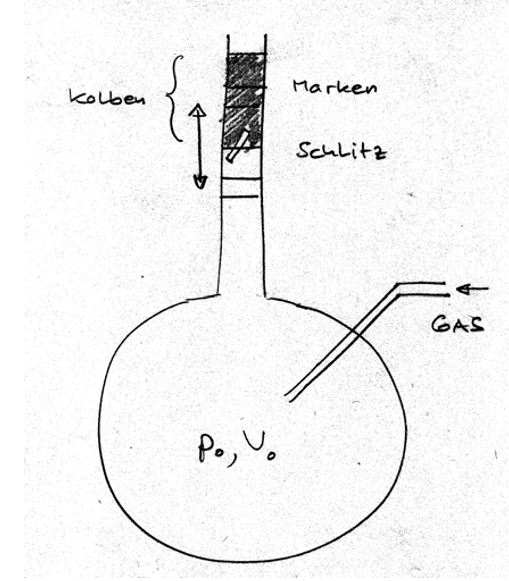 Kolben
Marken
Schlitz
GAS
P₀, V₀